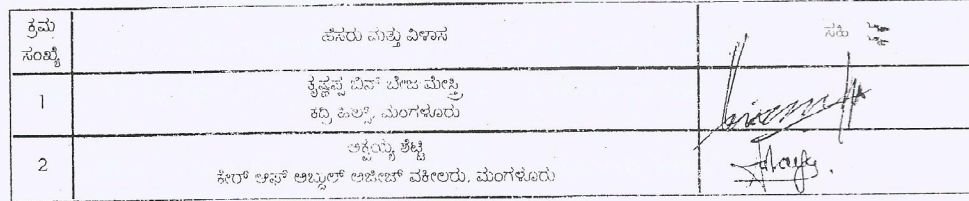 ಕ್ರಮ ಸಂಖ್ಯೆ
ಹೆಸರು ಮತ್ತು ವಿಳಾಸ
ಸಹಿ
1
ಕೃಷ್ಣಪ್ಪ ಬಿನ್ ಬೇಜ ಮೇಸ್ತ್ರಿ
ಕದ್ರಿ ಹಿಲ್ಸ್, ಮಂಗಳೂರು
2
ಅಕ್ಷಯ್ಯ ಶೆಟ್ಟಿ
ಕೇರ್ ಆಫ್ ಅಬ್ದುಲ್ ಅಜೀಜ್ ವಕೀಲರು, ಮಂಗಳೂರು